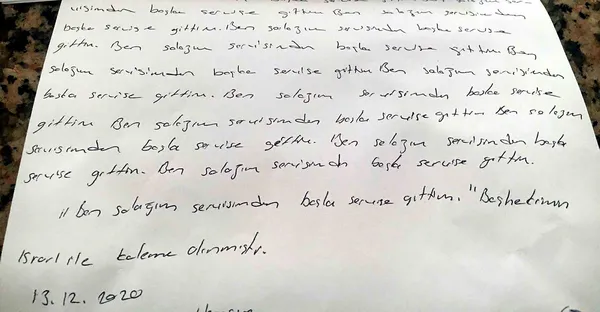 visimden başka servise gittim Ben salağım servisimden
başka servise gittim. Ben salağım servisimden başka servise
gittim. Ben salağım servisimden başka servise gittim Ben
salağım servisimden başka servise gittim Ben salağım servisimden
başka servise gittim. Ben salağım servisimden başka servise
gittim Ben salağım servisimden başka servise gittim Ben salağım
servisimden başka servise gittim. Ben salağım servisimden başka
servise gittim. Ben salağım servisimden başka servise gittim.
Ben salağım servisimden başka servise gittim. "Başhekimin
Israrı ile kaleme alınmıştır.
13.12.2020